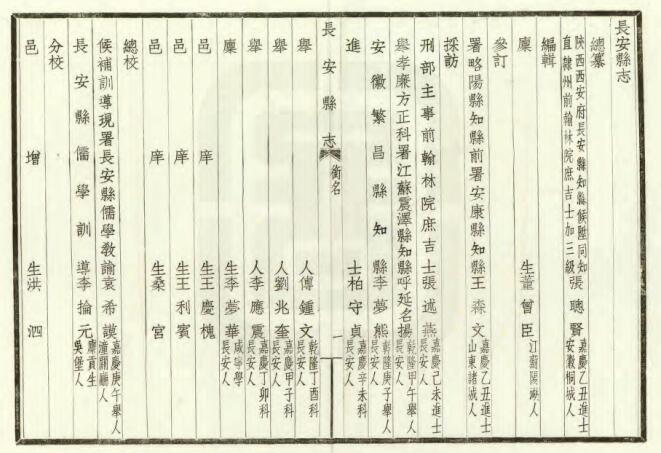 長安縣志
總纂
陝西西安府長安縣知縣候陞同知直隸州前翰林院庶吉士加三級張聰賢嘉慶乙丑進士安徽桐城人
編輯
廩生董曾臣江蘇陽湖人
參訂
署略陽縣知縣前署安康縣知縣王森文嘉慶乙丑進士山東諸城人
採訪
刑部主事前翰林院庶吉士張述燕嘉慶己未進士長安人
舉孝廉方正科署江蘇震澤縣知縣呼延名揚乾隆甲午舉人長安人
安徽繁昌縣知縣李夢熊乾隆庚子舉人長安人
進士柏守貞嘉慶辛未科長安人
長安縣志 銜名 一
舉人傅鍾文乾隆丁酉科長安人
舉人劉兆奎嘉慶甲子科長安人
舉人李應震嘉慶丁卯科長安人
廩生李夢華咸寧學長安人
邑庠生王慶槐
邑庠生王利賓
邑庠生桑宮
總校
候補訓導現署長安縣儒學敎諭袁希謨嘉慶庚午舉人潼關廳人
長安縣儒學訓導李掄元廩貢生吳堡人
分校
邑增生洪泗